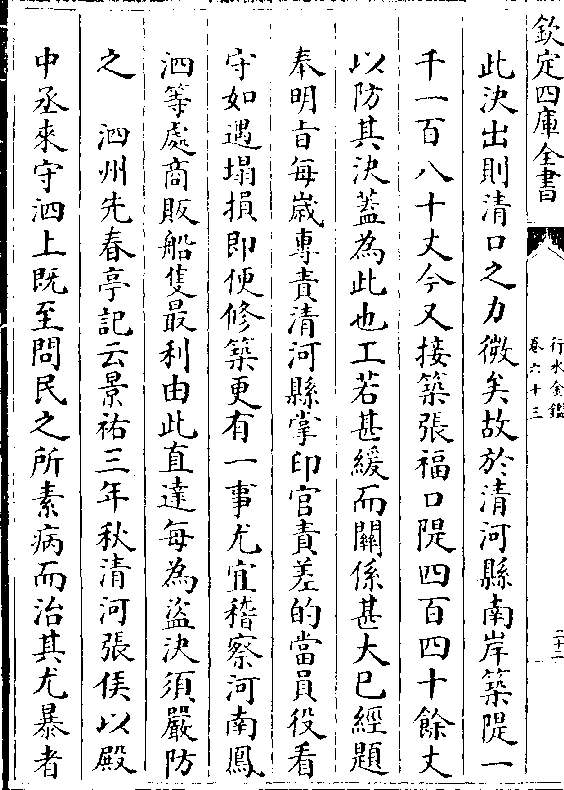 欽定四庫全書
行水金鑑
卷六十三
二十一
此決出則清口之力微矣故於清河縣南岸築隄一
千一百八十丈今又接築張福口隄四百四十餘丈
以防其決蓋為此也工若甚緩而關係甚大已經題
奉明旨每歲專責清河縣掌印官責差的當員役看
守如遇塌損即便修築更有一事尤宜稽察河南鳳
泗等處商販船隻最利由此直達每為盜決須嚴防
之　泗州先春亭記云景祐三年秋清河張侯以殿
中丞來守泗上既至問民之所素病而治其尤暴者